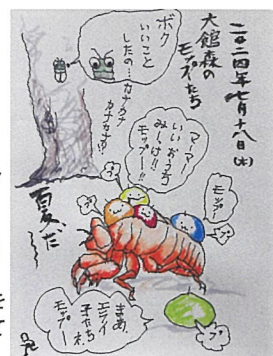 二〇二四年七月十八日(木)
大館森の
モップたち
ボク
いいこと
したの…カナカナ
カナカナゆ!!
マーマー!
いいおうち
みーっけ!!
モップー!!
モップー
プ
プ
プ
プ
夏だ〜
まあ、
エライ
子たちね
モップー